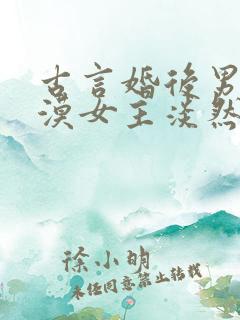 古言婚后男
漠女主淡然
徐小明
未经同意禁止转载